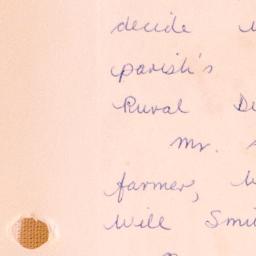 decide
parish's
Rural De
Mr.
farmer, W
Will Smi